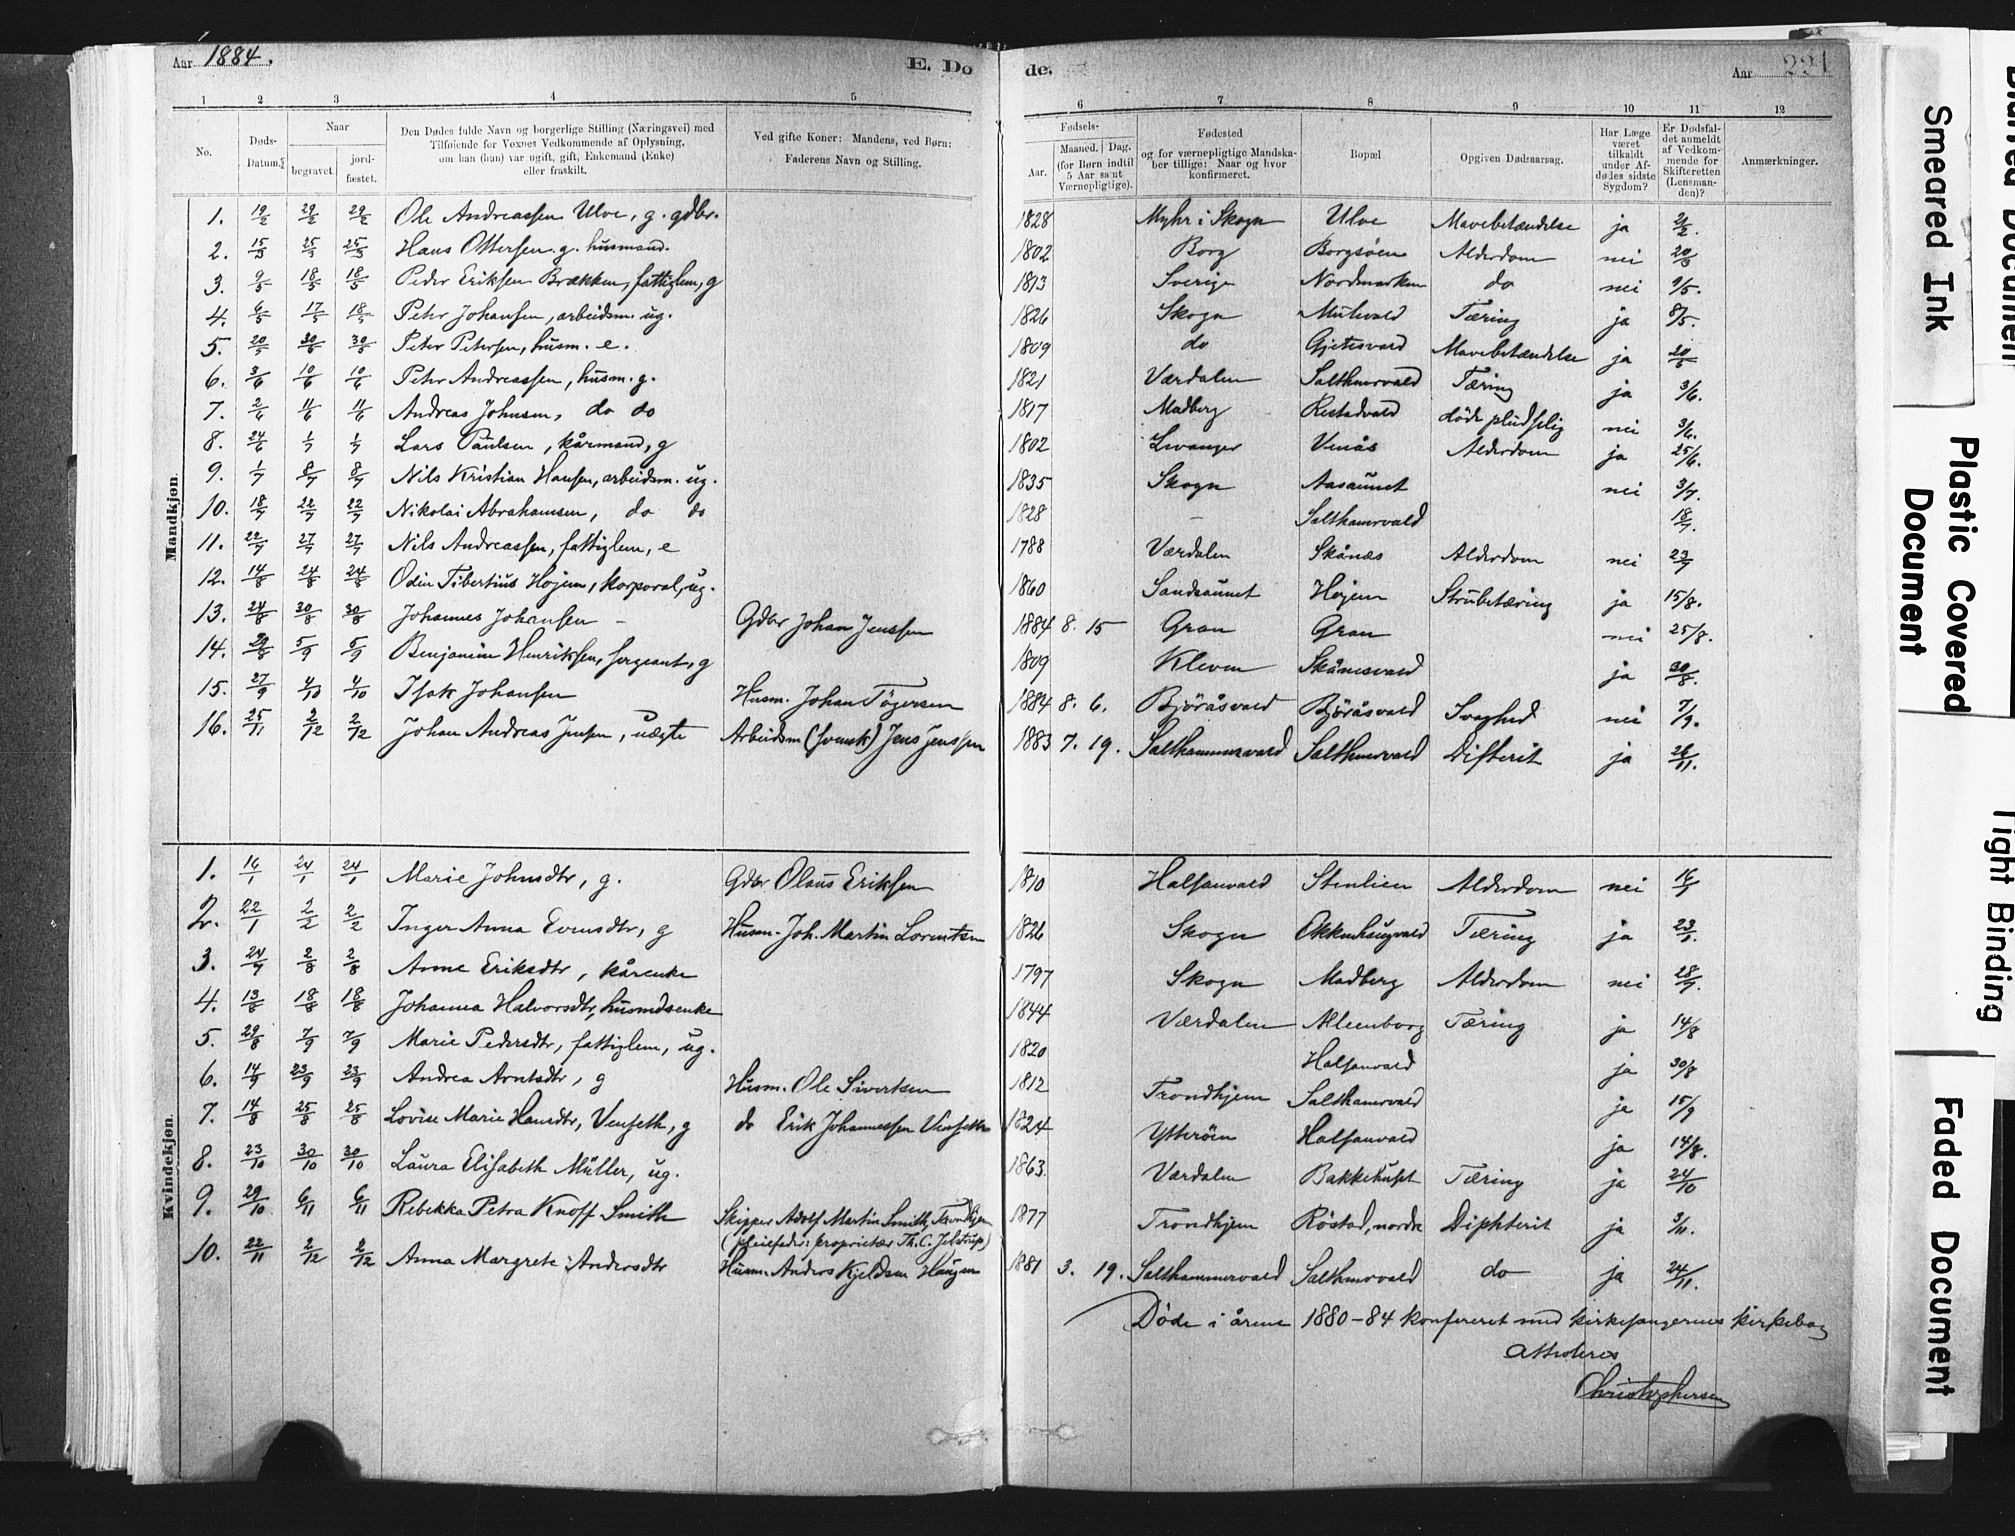 Aar 1884.
E. Døde.
Aar 221
1 2 3 4 5 6 7 8 9 10 11 12
No.
Døds-Datum.
Naar
begravet.
jordfæstet.
Den Dødes fulde Navn og borgerlige Stilling (Næringsvei) med
Tilføiende for Voxnes Vedkommende af Oplysning,
om han (hun) var ugift, gift, Enkemand (Enke)
eller fraskilt.
Ved gifte Koner: Mandens, ved Børn:
Faderens Navn og Stilling.
Fødsels-
Aar.
Maaned. Dag.
(for Børn indtil
5 Aar samt
Værnepligtige).
Fødested
og for værnepligtige Mandska-
ber tillige: Naar og hvor
konfirmeret.
Bopæl
Opgiven Dødsaarsag.
Har Læge
været
tilkaldt
under Af-
dødes sidste
Sygdom?
Er Dødsfal-
det anmeldt
af Vedkom-
mende for
Skifteretten
(Lensman-
den)?
Anmærkninger.
Mandkjøn.
1. 19/2 29/2 29/2 Ole Andreassen Ulve, g. gdbr. 1828 Myhr i Skogn Ulve Mavebetændelse ja 2/2.
2. 15/3 25/3 25/3 Hans Ottersen g. husmand. 1802 Borg Borgsøen Alderdom nei 20/3
3. 9/5 18/5 18/5 Peder Eriksen Brækken, fattiglem, g 1813 Sverige Nordmarken do nei 9/5.
4. 6/5 17/5 18/5 Peter Johansen, arbeidsm. ug. 1826 Skogn Mulevald Tæring ja 8/5.
5. 20/5 30/5 30/5 Peter Petersen, husm. e. 1809 do Gjetesvald Mavebetændelse ja 20/5
6. 3/6 10/6 10/6 Peter Andreassen, husm. g. 1821 Værdalen Salthmrvald Tæring ja 3/6.
7. 2/6 11/6 11/6 Andreas Johnsen, do do 1817 Madberg Restadvald døde pludselig nei 3/6.
8. 24/6 1/7 1/7 Lars Paulsen, kårmand, g 1802 Levanger Venås Alderdom ja 25/6.
9. 1/7 8/7 8/7 Nils Kristian Hansen, arbeidsm. ug. 1835 Skogn Aasaunet nei 3/7.
10. 18/7 22/7 22/7 Nikolai Abrahamsen, do do 1828 – Salthamrvald 18/7.
11. 22/7 27/7 27/7 Nils Andreassen, fattiglem, e 1788 Værdalen Skånæs Alderdom nei 23/7
12. 14/8 24/8 24/8 Odin Tibertius Højem, korporal, ug. 1860 Sandsaunet Højem Strubetæring ja 15/8.
13. 24/8 30/8 30/8 Johannes Johansen – Gdbr Johan Jenssen 1884 8. 15 Gran Gran nei 25/8.
14. 29/8 5/9 5/9 Benjamin Henriksen, sergeant, g 1809 Kleven Skånesvald ja 30/8.
15. 27/9 4/10 4/10 Isak Johansen Husm. Johan Tøgersen 1884 8. 6. Bjøråsvald Bjøråsvald Svaghed nei 7/9.
16. 25/11 2/12 2/12 Johan Andreas Jensen, uægte Arbeidsm (svensk) Jens Jenssen 1883 7. 19. Salthammervald Salthmrvald Difterit ja 26/11.
Kvindekjøn.
1. 16/1 24/1 24/1 Marie Johnsdtr, g. Gdbr Olaus Eriksen 1810 Halsanvald Stenlien Alderdom nei 16/1
2. 22/1 2/2 2/2 Inger Anna Evensdtr, g Husm. Joh. Martin Lorentsen 1826 Skogn Ekkenhaugvald Tæring ja 23/1.
3. 24/7 2/8 2/8 Anne Eriksdtr, kårenke 1797 Skogn Madberg Alderdom nei 28/7.
4. 13/8 18/8 18/8 Johanna Halvorsdtr, husmdsenke 1844 Værdalen Alleenborg Tæring ja 14/8
5. 29/8 7/9 7/9 Marie Pedersdtr, fattiglem, ug. 1820 Halsanvald ja 30/8
6. 14/9 23/9 23/9 Andrea Arntsdtr, g Husm. Ole Sivertsen 1812 Trondhjem Salthamrvald ja 15/9
7. 14/8 25/8 25/8 Lovise Marie Hansdtr, Venseth, g do Erik Johannessen Venseth 1824 Ytterøen Halsanvald ja 14/8.
8. 23/10 30/10 30/10 Laura Elisabeth Müller, ug. 1863 Værdalen Bakkehuset Tæring ja 24/10
9. 29/10 6/11 6/11 Rebekka Petra Knoff Smith Skipper Adolf Martin Smith, Trondhjem 1877 Trondhjem Røstad, nordre Diphterit ja 3/11.
(pleiefader: proprietær Th. C. Jelstrup)
10. 22/11 2/12 2/12 Anna Margrete Andersdtr Husm. Anders Kjeldsen Haugen 1881 3. 19. Salthammervald Salthmrvald do ja 24/11.
Døde i årene 1880-84 konfereret med kirkesangerens kirkebog
Attesteres
Christophersen
Blurred Document
Smeared Ink
Plastic Covered Document
Tight Binding
Faded Document